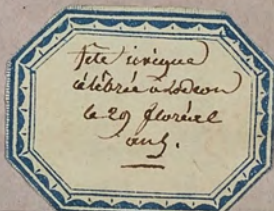 Fête civique
célébrée à Lodeon
le 29 floréal